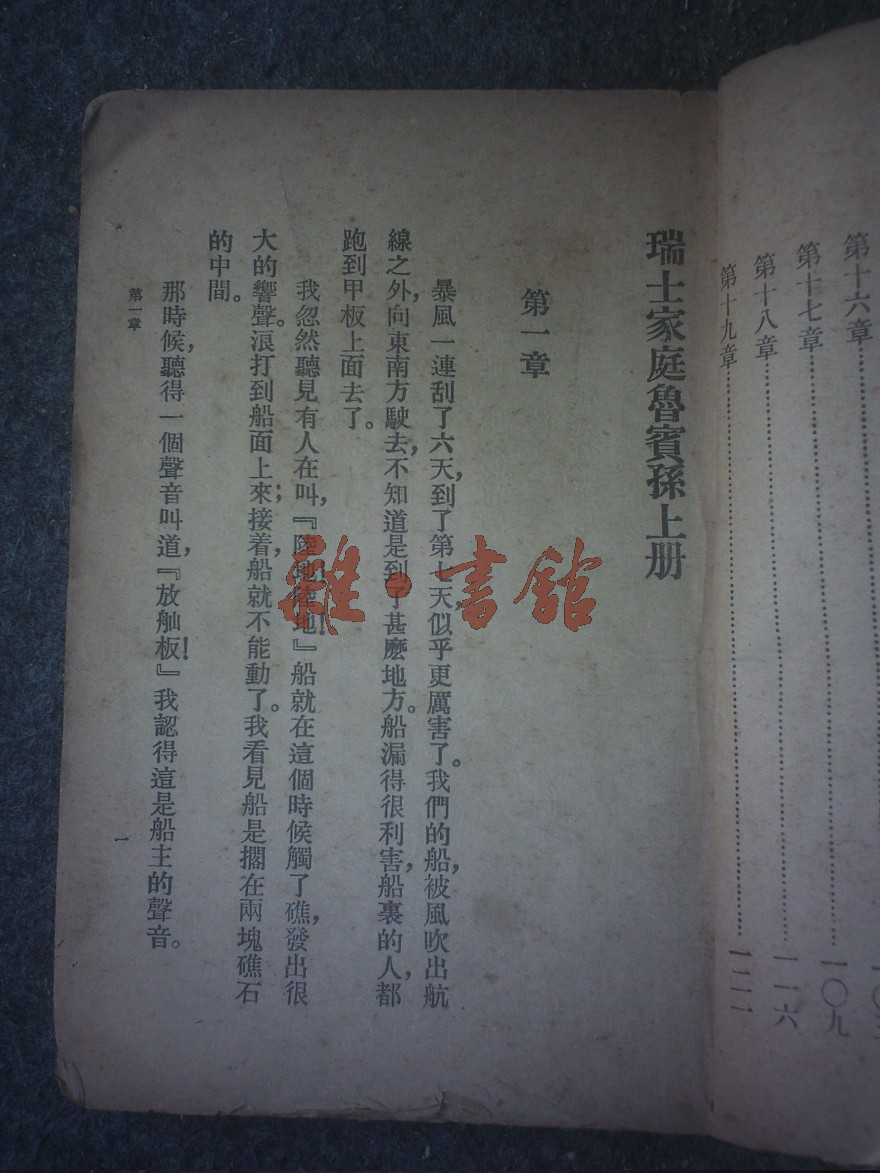 第十六章
第十七章……一〇九
第十八章……一一六
第十九章……一二一
瑞士家庭魯賓孫上册
第一章
暴風一連刮了六天，到了第七天，似乎更厲害了。我們的船，被風吹出航
線之外，向東南方駛去，不知道是到了甚麼地方。船漏得很利害，船裏的人，都
跑到甲板上面去了。
我忽然聽見有人在叫，『陸地！陸地！』船就在這個時候觸了礁，發出很
大的響聲。浪打到船面上來；接着，船就不能動了。我看見船是擱在兩塊礁石
的中間。
那時候，聽得一個聲音叫道，『放舢板！』我認得這是船主的聲音。
第一章
一
雜·書館